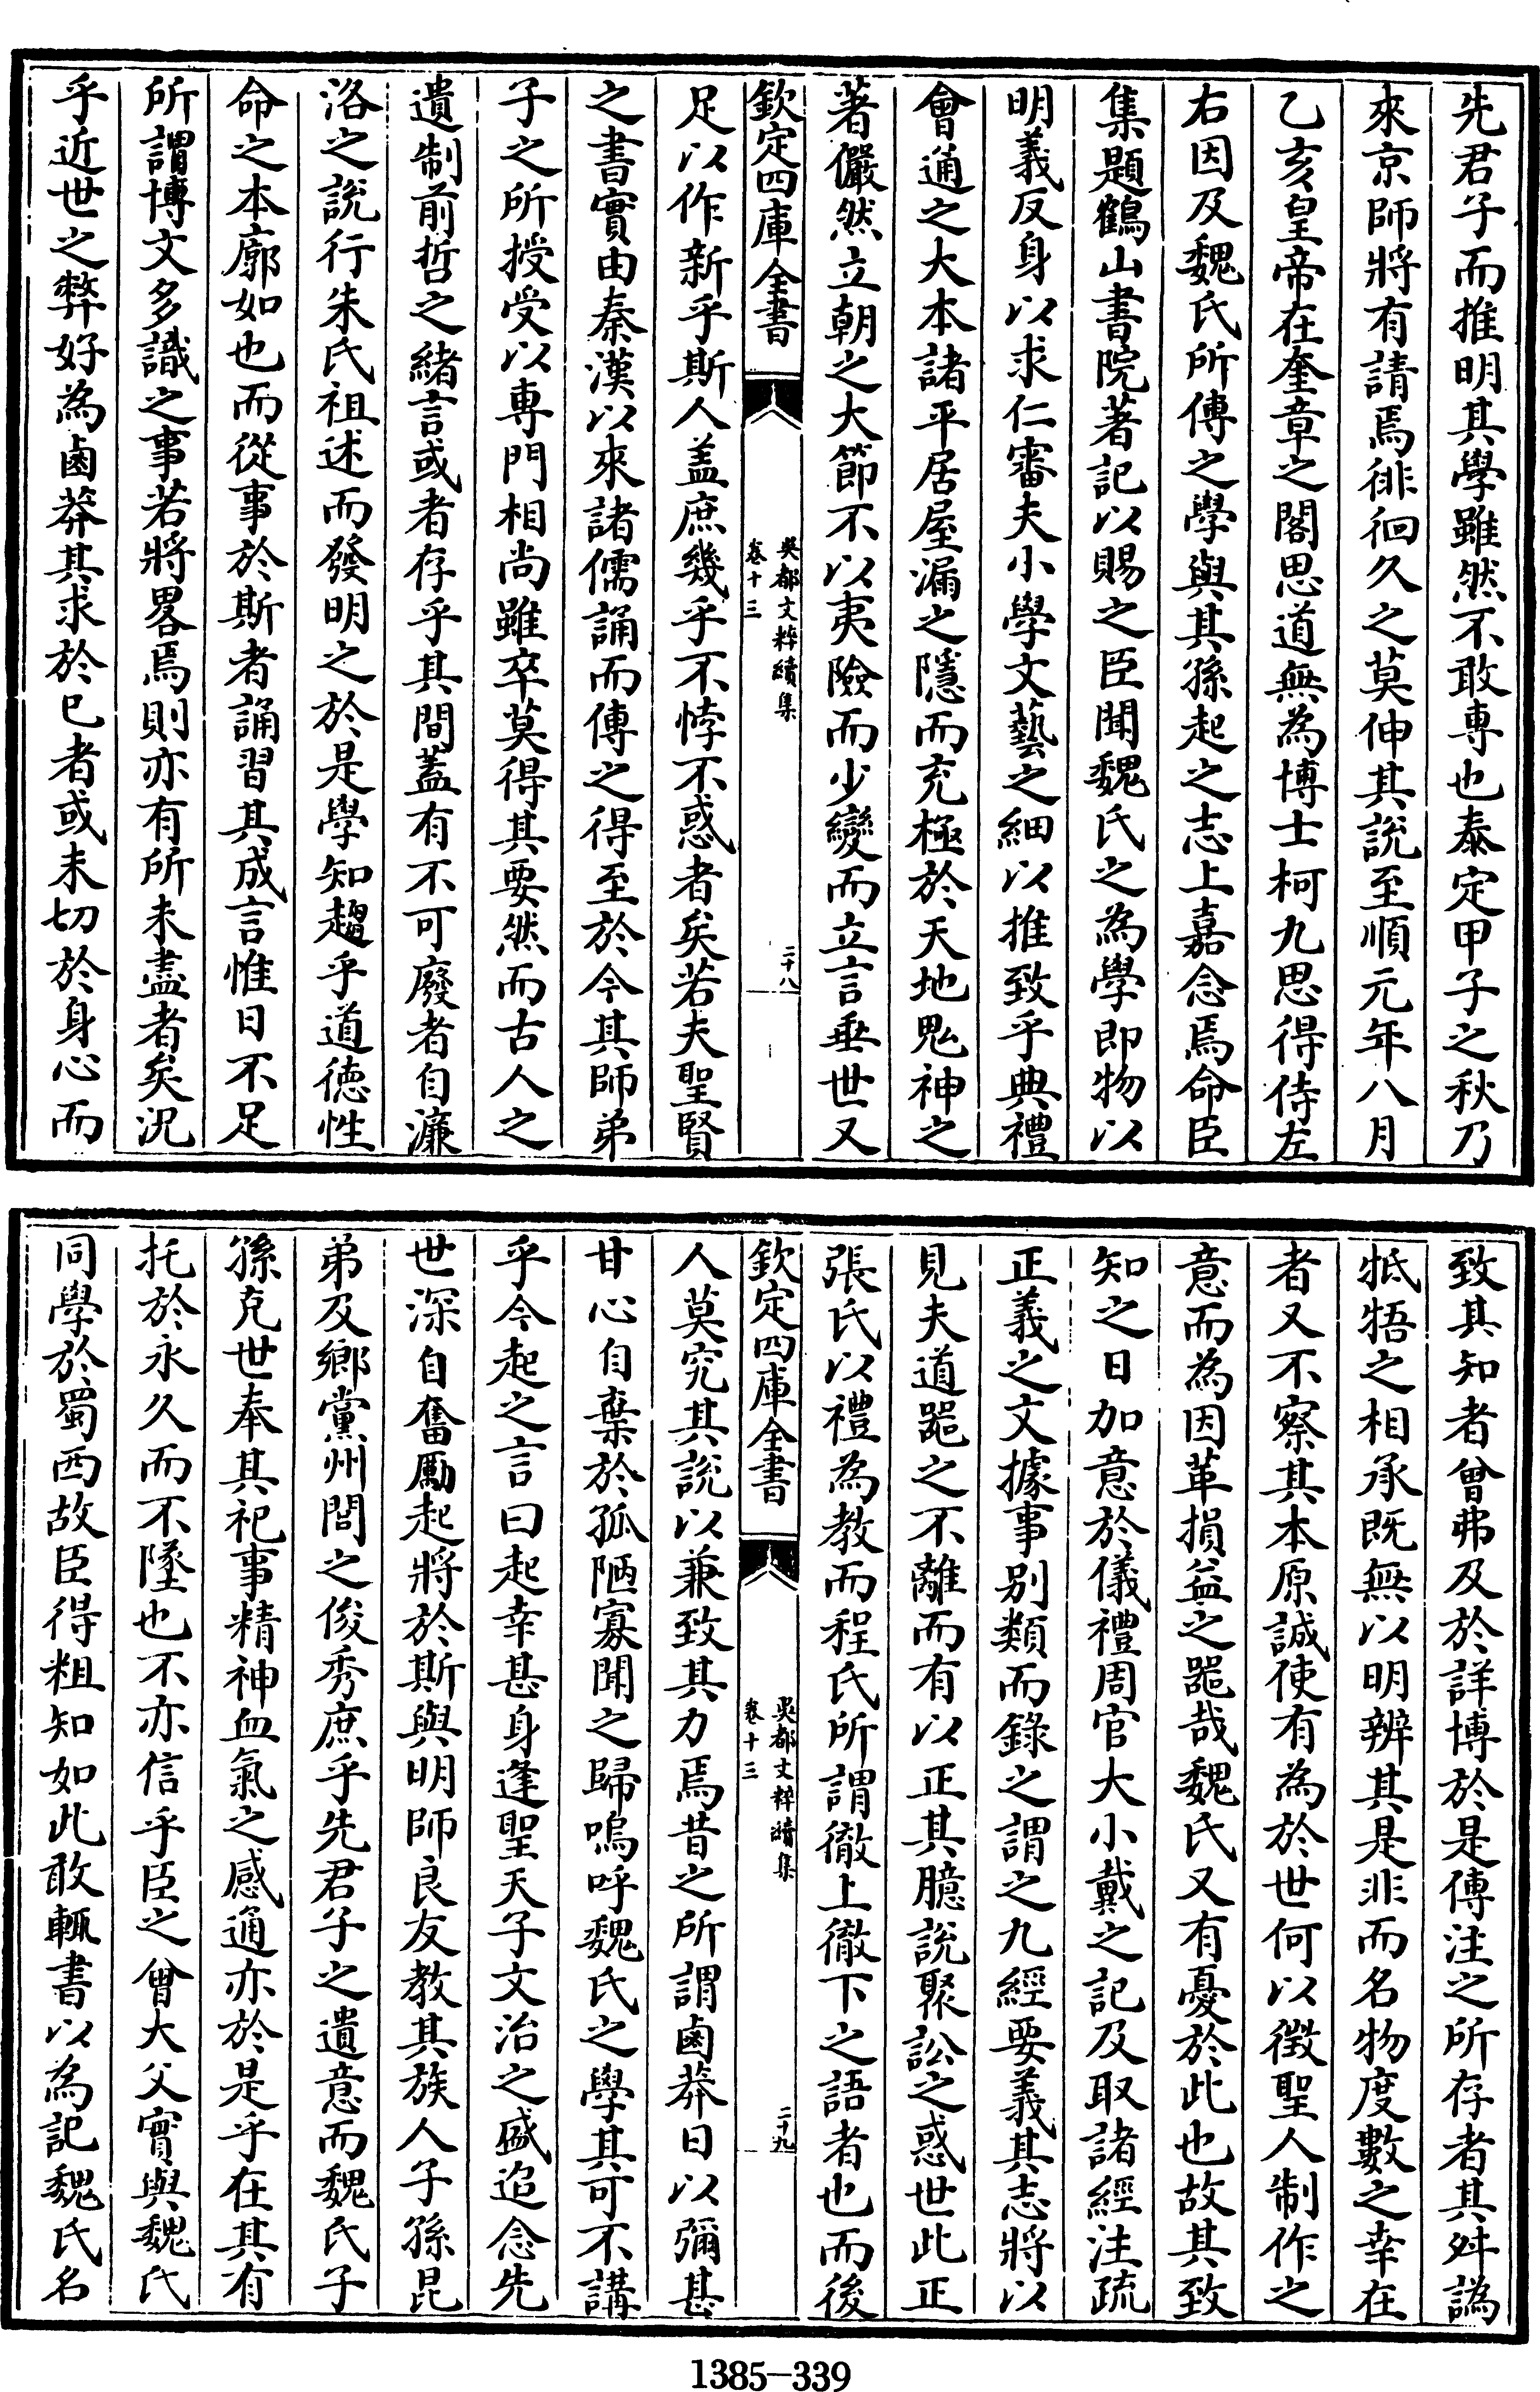 先君子而推明其學雖然不敢專也泰定甲子之秋乃
來京師將有請焉徘徊久之莫伸其說至順元年八月
乙亥皇帝在奎章之閣思道無為博士柯九思得侍左
右因及魏氏所傳之學與其孫起之志上嘉念焉命臣
集題鶴山書院著記以賜之臣聞魏氏之為學即物以
明義反身以求仁審夫小學文藝之細以推致乎典禮
會通之大本諸平居屋漏之隱而充極於天地鬼神之
著儼然立朝之大節不以夷險而少變而立言垂世又
欽定四庫全書
吳都文粹續集
卷十三
二十八
足以作新乎斯人盖庶幾乎不悖不惑者矣若夫聖賢
之書實由秦漢以來諸儒誦而傳之得至於今其師弟
子之所授受以專門相尚雖卒莫得其要然而古人之
遺制前哲之緒言或者存乎其間蓋有不可廢者自濂
洛之說行朱氏祖述而發明之於是學知趨乎道德性
命之本廓如也而從事於斯者誦習其成言惟日不足
所謂博文多識之事若將畧焉則亦有所未盡者矣況
乎近世之弊好為鹵莽其求於已者或未切於身心而
致其知者曾弗及於詳博於是傳注之所存者其舛譌
牴牾之相承既無以明辨其是非而名物度數之幸在
者又不察其本原誠使有為於世何以徴聖人制作之
意而為因革損益之噐哉魏氏又有憂於此也故其致
知之日加意於儀禮周官大小戴之記及取諸經注疏
正義之文據事别類而錄之謂之九經要義其志將以
見夫道噐之不離而有以正其臆說聚訟之惑世此正
張氏以禮為教而程氏所謂徹上徹下之語者也而後
欽定四庫全書
吳都文粹續集
卷十三
二十九
人莫究其說以兼致其力焉昔之所謂鹵莽日以彌甚
甘心自棄於孤陋寡聞之歸嗚呼魏氏之學其可不講
乎今起之言曰起幸甚身逢聖天子文治之盛追念先
世深自奮厲起將於斯與明師良友教其族人子孫昆
弟及鄉黨州閭之俊秀庶乎先君子之遺意而魏氏子
孫克世奉其祀事精神血氣之感通亦於是乎在其有
托於永久而不墜也不亦信乎臣之曾大父實與魏氏
同學於蜀西故臣得粗知如此敢輒書以為記魏氏名
1385-339